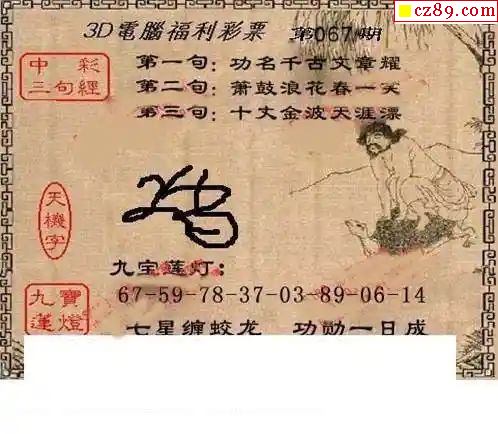 cz89.com
3D電腦福利彩票 第067期
中彩
三句經
第一句：功名千古文章耀
第二句：萧鼓浪花春一笑
第三句：十丈金波天涯漂
天機字
九宝莲灯：
67-59-78-37-03-89-06-14
九寶蓮燈
七星缠蛟龙 功勋一日成